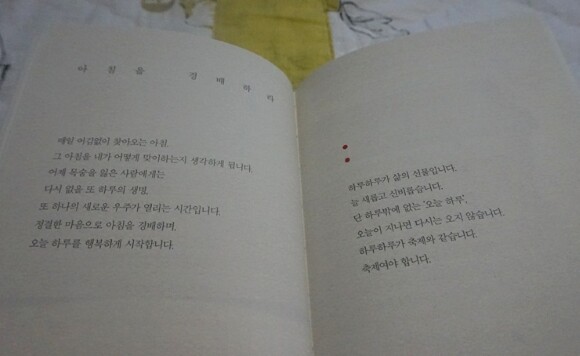 아침을 경배하라
매일 어김없이 찾아오는 아침.
그 아침을 내가 어떻게 맞이하는지 생각하게 됩니다.
어제 목숨을 잃은 사람에게는
다시 없을 또 하루의 생명.
또 하나의 새로운 우주가 열리는 시간입니다.
정결한 마음으로 아침을 경배하며,
오늘 하루를 행복하게 시작합니다.
하루하루가 삶의 선물입니다.
늘 새롭고 신비롭습니다.
단 하루밖에 없는 '오늘 하루'.
오늘이 지나면 다시는 오지 않습니다.
하루하루가 축제와 같습니다.
축제여야 합니다.